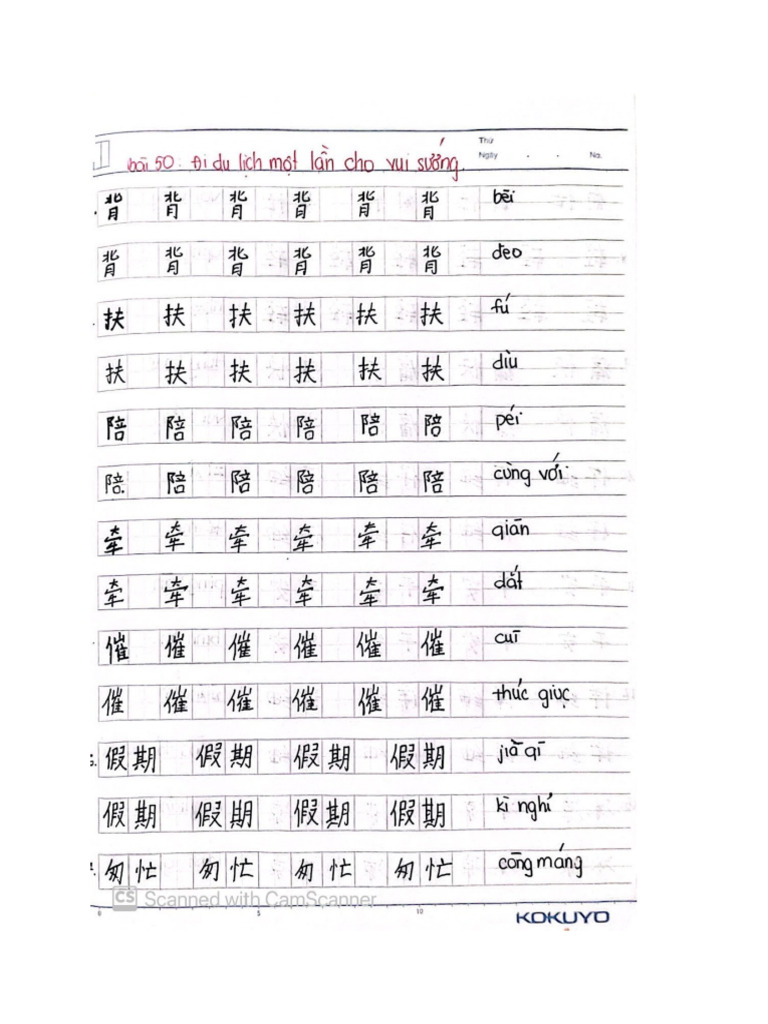 Bài 50: Đi du lịch một lần cho vui sướng.
Thứ
Ngày . . No.
背 背 背 背 背 背 bēi
背 背 背 背 背 背 đeo
扶 扶 扶 扶 扶 扶 fú
扶 扶 扶 扶 扶 扶 dìu
陪 陪 陪 陪 陪 陪 péi
陪 陪 陪 陪 陪 陪 cùng với
牵 牵 牵 牵 牵 牵 qiān
牵 牵 牵 牵 牵 牵 dắt
催 催 催 催 催 催 cuī
催 催 催 催 催 催 thúc giục
假期 假期 假期 假期 jià qī
假期 假期 假期 假期 kì nghỉ
匆忙 匆忙 匆忙 匆忙 cōng máng
CS Scanned with CamScanner
0 5 10 KOKUYO